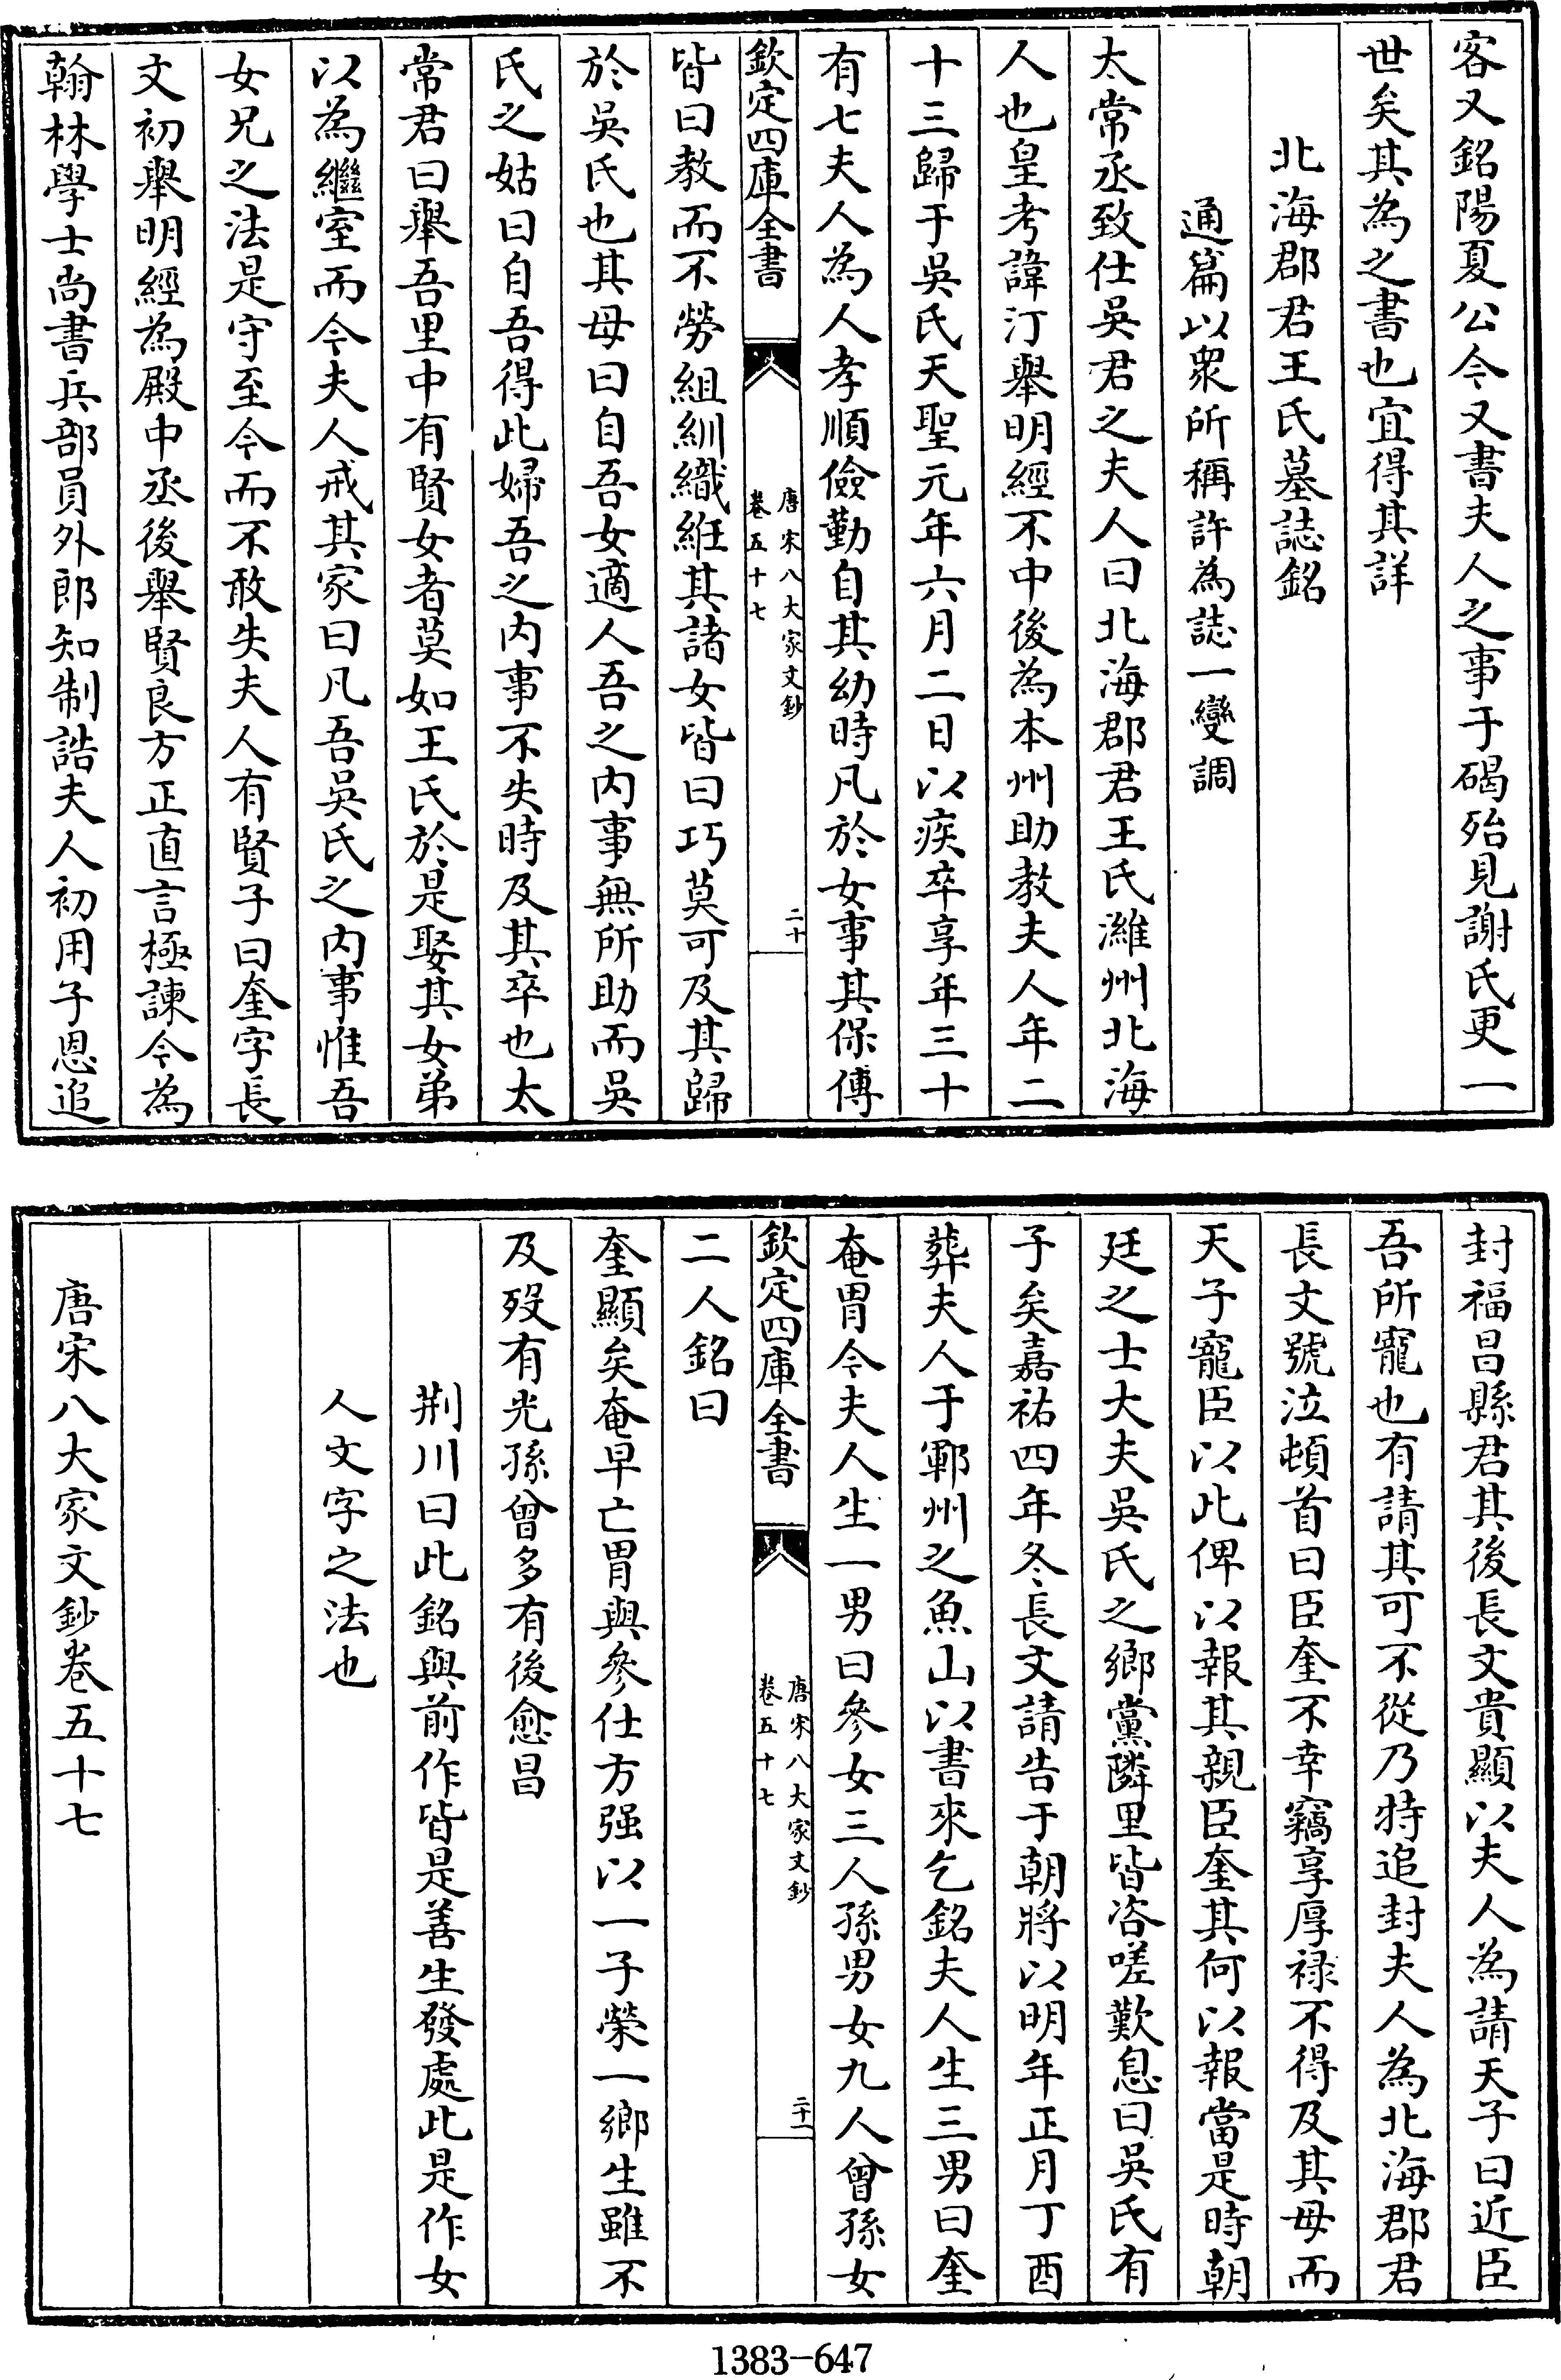 客又銘陽夏公今又書夫人之事于碣殆見謝氏更一
世矣其為之書也宜得其詳
北海郡君王氏墓誌銘
通篇以衆所稱許為誌一變調
太常丞致仕吳君之夫人曰北海郡君王氏濰州北海
人也皇考諱汀舉明經不中後為本州助教夫人年二
十三歸于吳氏天聖元年六月二日以疾卒享年三十
有七夫人為人孝順儉勤自其幼時凡於女事其保傅
欽定四庫全書
唐宋八大家文鈔
卷五十七
二十
皆曰教而不勞組紃織絍其諸女皆曰巧莫可及其歸
於吳氏也其母曰自吾女適人吾之內事無所助而吳
氏之姑曰自吾得此婦吾之內事不失時及其卒也太
常君曰舉吾里中有賢女者莫如王氏於是娶其女弟
以為繼室而今夫人戒其家曰凡吾吳氏之內事惟吾
女兄之法是守至今而不敢失夫人有賢子曰奎字長
文初舉明經為殿中丞後舉賢良方正直言極諫今為
翰林學士尚書兵部員外郎知制誥夫人初用子恩追
封福昌縣君其後長文貴顯以夫人為請天子曰近臣
吾所寵也有請其可不從乃特追封夫人為北海郡君
長文號泣頓首曰臣奎不幸竊享厚祿不得及其母而
天子寵臣以此俾以報其親臣奎其何以報當是時朝
廷之士大夫吳氏之鄉黨隣里皆咨嗟歎息曰吳氏有
子矣嘉祐四年冬長文請告于朝將以明年正月丁酉
葬夫人于鄆州之魚山以書來乞銘夫人生三男曰奎
奄胃今夫人生一男曰參女三人孫男女九人曾孫女
欽定四庫全書
唐宋八大家文鈔
卷五十七
二十一
二人銘曰
奎顯矣奄早亡胃與參仕方强以一子榮一鄉生雖不
及歿有光孫曾多有後愈昌
荆川曰此銘與前作皆是善生發處此是作女
人文字之法也
唐宋八大家文鈔卷五十七
1383-647